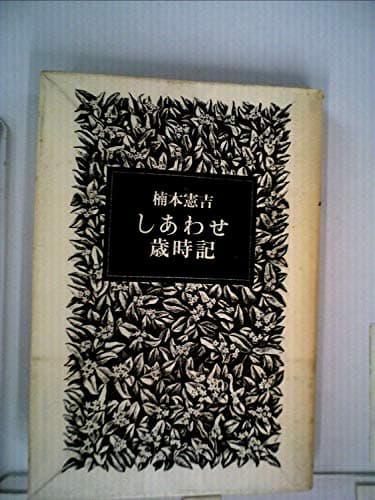 楠本憲吉
しあわせ
歳時記